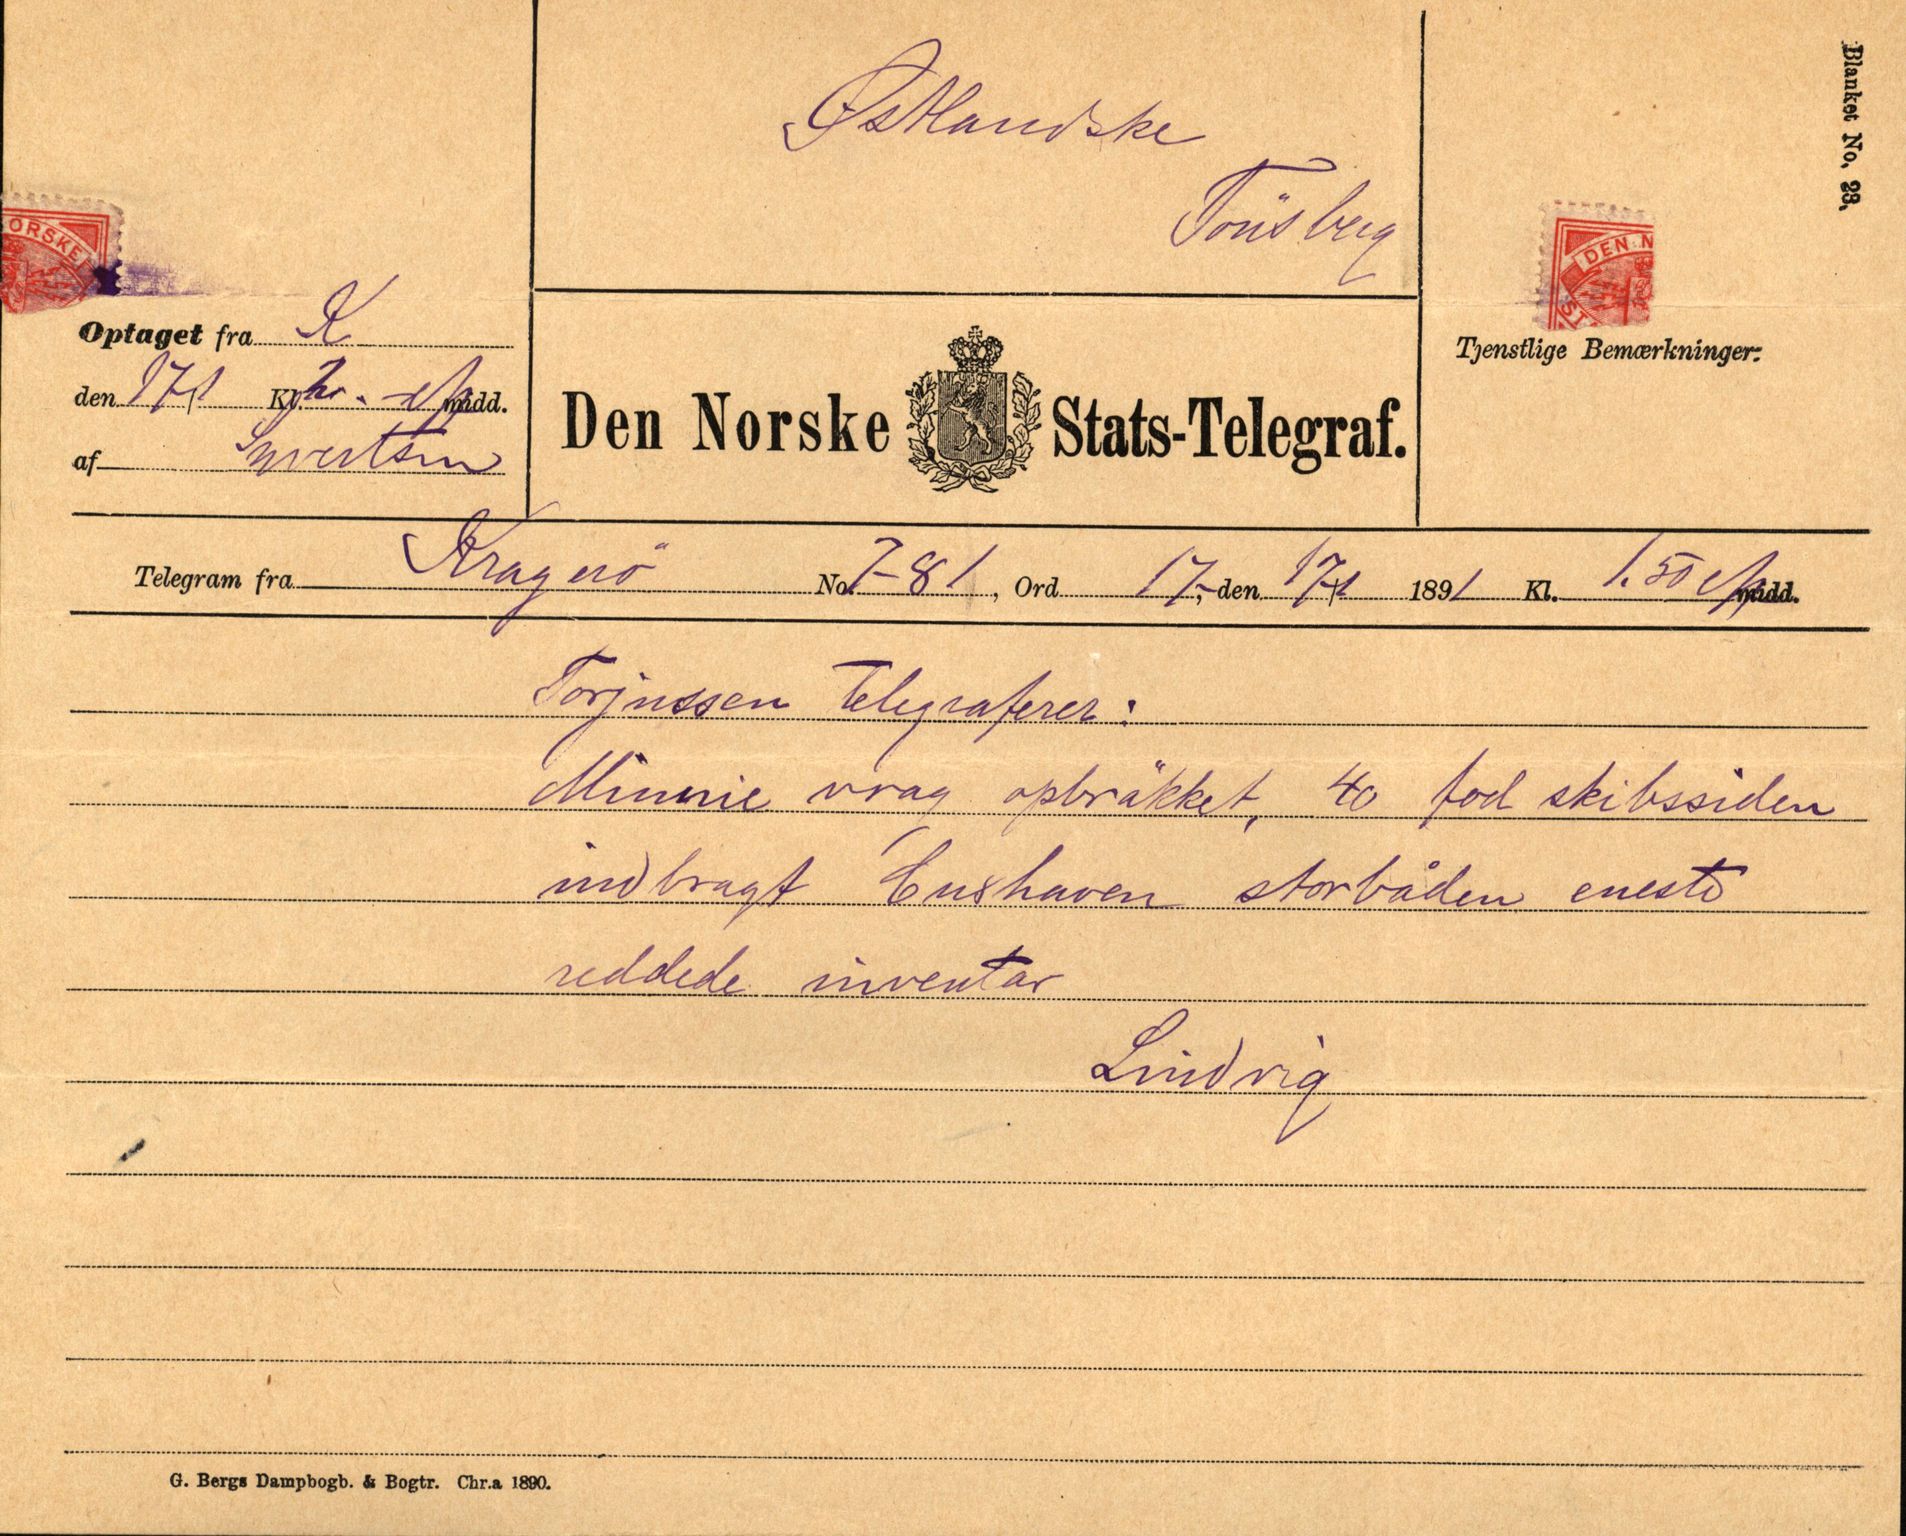 Blanket No. 23.
Østlandske
Tönsberg
ORSKE
DEN N
ST
Optaget fra K
den 17/1 Kl. 2 e/midd.
af Syvertsen
Den Norske Stats-Telegraf.
Tjenstlige Bemærkninger:
Telegram fra Kragerö No. 7-81, Ord 17, den 17/1 1891 Kl. 1.50 e/midd.
Torjussen telegraferer:
Minnie vrag opbräkket, 40 fod skibssiden
indbragt Cuxhaven storbåden eneste
reddede inventar
Lindvig
G. Bergs Dampbogb. & Bogtr. Chr.a 1890.